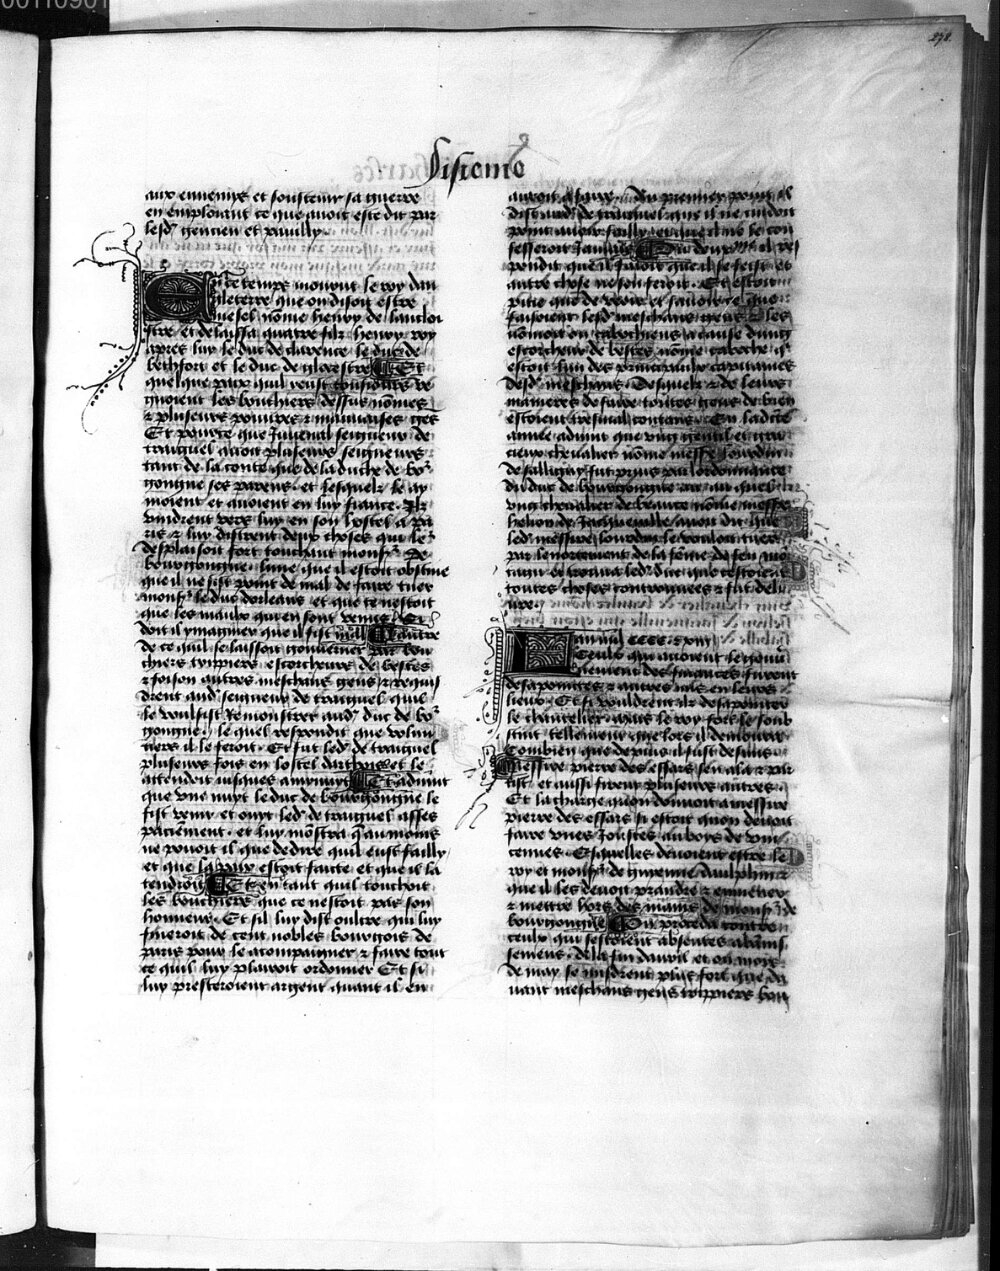 278
Sisieme
aux ennemys et soustenir sa guerre
en emploiant ce que avoit este dit par
lesd gencien et pavilly
En ce temps mourut le roy dan
gleterre que on disoit estre
mesel nome henry de lanclos
tre et delaissa quatre filz henry roy
apres luy le duc de clarence le duc de
bethfort et le duc de glocestre Et
quelque paix quil veust tousiours re
gnoient les bouchiers dessus nomes
z plusieurs pouvres z mauvaises ges
Et pource que Juvenal seigneur de
traignel avoit plusieurs seigneurs
tant de la conte que de la duche de bor
gongne ses parens et lesquelz le ay
moient et avoient en luy fiance Ilz
vindrent vers luy en son hostel a pa
ris z luy distrent deux choses qui le
desplaisoit fort touchant monsr de
bourgongne lune que il estoit obstine
que il ne fist point de mal de faire tuer
monsr le duc dorleans et que ce nestoit
que les maulx qui en sont venus
doit il ymaginer que il fist mal Lautre
de ce quil se laissoit gouverner par bou
chiers trippiers escorcheurs de bestes
z foison autres meschans gens z requis
drent aud seigneur de traignel quil
le voulsist remonstrer aud duc de bor
gongne le quel respondit que volun
tiers il le feroit Et fut led de traignel
plusieurs fois en lostel darthois et le
attendoit jusques amynuyt Et advint
que une nuyt le duc de bourgongne le
fist venir et ouyt led de traignel asses
paciement et luy monstra que au moins
ne povoit il que de dire quil eust failly
et que la paix estoit faicte et que il la
tendroit Et en tant quil touchoit
les bouchiers que ce nestoit pas son
honneur Et sil luy dist oultre qui luy
fineroit de cent nobles bourgois de
paris pour le acompaigner z faire tout
ce quil luy plairoit ordonner Et si
luy presteroient argent quant il en
auroit a faire Au premier point il
dist aud de traignel que il ne cuidoit
point avoir failly et que il ne le con
fesseroit jamais Au deuxme il res
pondit que il failloit que il se feist et
autre chose ne son feroit Et estoit
pitie que de veoir et savoir ce que
faisoient lesd meschans gens z les
nomoit on cabochiens a cause dung
escorcheur de bestes nome caboche qui
estoit lun des principaulx capitaines
desd meschans Desquelz z de leurs
manieres de faire toutes gens de bien
estoient tres mal contens En ladicte
annee advint que ung gentil et gra
cieux chevalier nome messe Lourdin
de salligny fut prins par lordonnance
du duc de bourgongne car au quel
ung chevalier de beauce nome messe
helion de Jacqueville avoit dit que
led messire Lourdin le vouloit tuer
par lenortement de la feme de feu mo
tagu et trouva led duc que cestoient
toutes choses controuvees z fut deli
vre
Lan mil cccc z xiii
Ceulx qui avoient le gouv
nement des finances furent
desapointes z autres mis en leurs
lieux Et si vouldrent ilz desapointer
le chancelier mais le roy fors le soub
stint tellement que lors il demoura
Combien que depuis il fust desmis
Messire pierre des essars sen ala z par
tist et aussi firent plusieurs autres
Et la charge quon donnoit a messire
pierre des essars si estoit quon devoit
faire unes joustes au boys de vin
cennes Esquelles devoient estre le
roy et monsr de guyenne daulphin z
que il les devoit prandre z enmener
z mettre hors des mains de monsr de
bourgongne On proceda contre
ceulx qui sestoient absentes a bannis
semens de la fin davril et ou mois
de may se misdrent plus fort que da
vant meschans gens trippiers bou